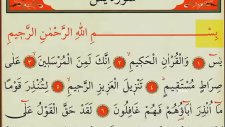 سورة يس
بِسْمِ اللّٰهِ الرَّحْمٰنِ الرَّحِيمِ
يٰسٓ ۝ وَالْقُرْاٰنِ الْحَكِيمِۙ ۝ اِنَّكَ لَمِنَ الْمُرْسَلِينَۙ ۝ عَلٰى
صِرَاطٍ مُسْتَقِيمٍۜ ۝ تَنْزِيلَ الْعَزِيزِ الرَّحِيمِۙ ۝ لِتُنْذِرَ قَوْمًا
مَٓا اُنْذِرَ اٰبَٓاؤُ۬هُمْ فَهُمْ غَافِلُونَ ۝ لَقَدْ حَقَّ الْقَوْلُ عَلٰٓى